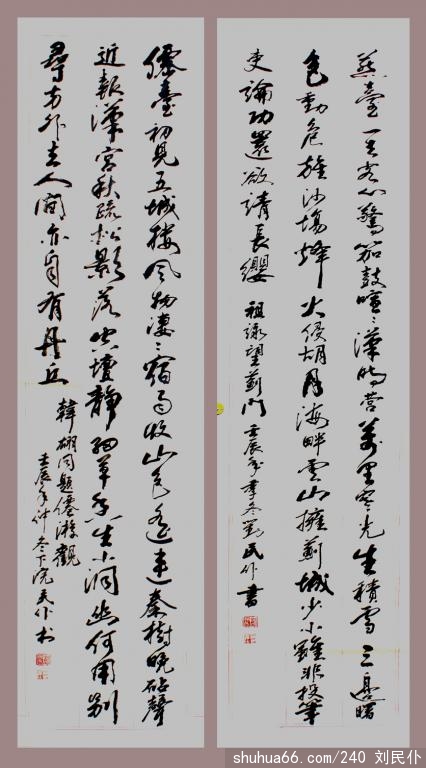 燕臺一去客心驚笳鼓喧〻漢將營萬里寒光生積雪三邊曙
色動危旌沙場烽火侵胡月海畔雲山擁薊城少小雖非投筆
吏論功還欲請長纓 祖詠望薊門 壬辰年季冬劉民仆書
僊臺初見五城樓風物淒〻宿雨收山色遙連秦樹晚砧聲
近報漢宮秋疏松影落空壇靜細草香生小洞幽何用別
尋方外去人間亦自有丹丘
韓翃同題僊游觀
壬辰年仲冬下浣民仆書
shuhua66.com/240 刘民仆